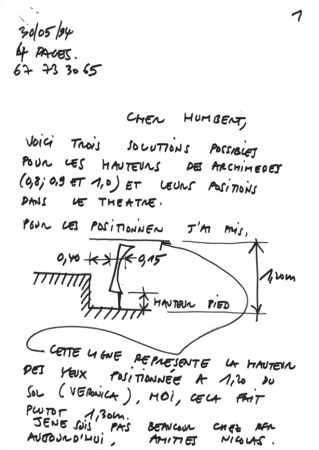 1
30/05/94
4 PAGES.
67 73 30 65
CHER HUMBERT,
VOICI TROIS SOLUTIONS POSSIBLES
POUR LES HAUTEURS DES ARCHIMEDES
(0,8; 0,9 ET 1,0) ET LEURS POSITIONS
DANS LE THEATRE.
POUR LES POSITIONNER J'AI PRIS,
0,40
0,15
1,20m
HAUTEUR PIED
CETTE LIGNE REPRESENTE LA HAUTEUR
DES YEUX POSITIONNÉE A 1,20 DU
SOL (VERONICA), MOI, CELA FAIT
PLUTOT 1,30m.
JE NE SUIS PAS BEAUCOUP CHEZ
AUJOURD'HUI, AMITIES NICOLAS.